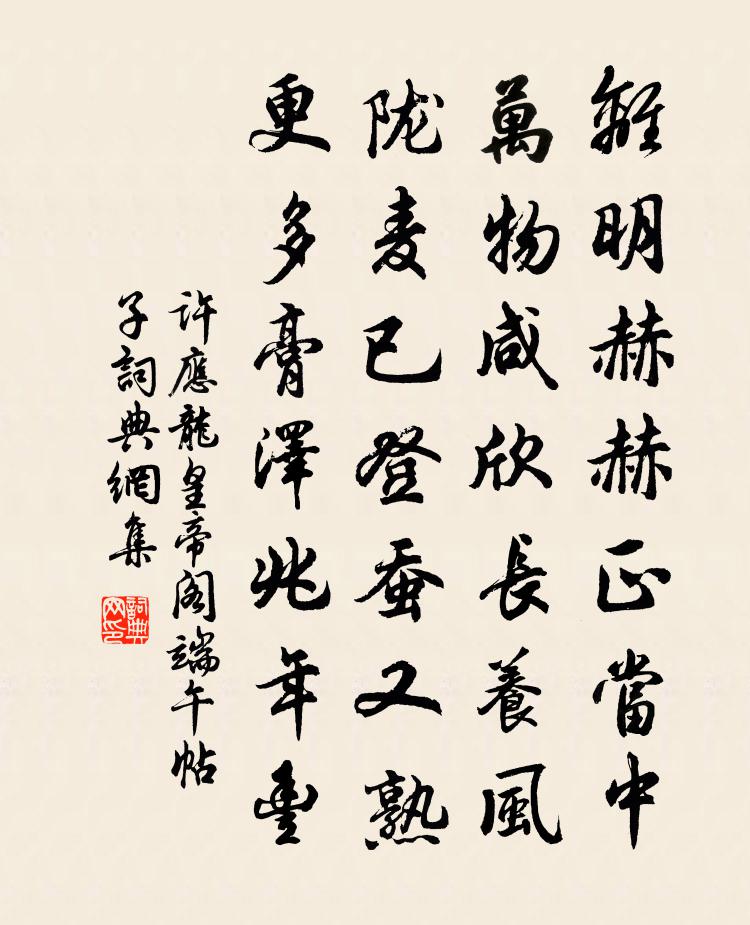 離明赫赫正當中
萬物咸欣長養風
陇麦已登蚕又熟
更多膏澤兆年豐
許應龍皇帝閣端午帖
子詞典網集
詞典
网印